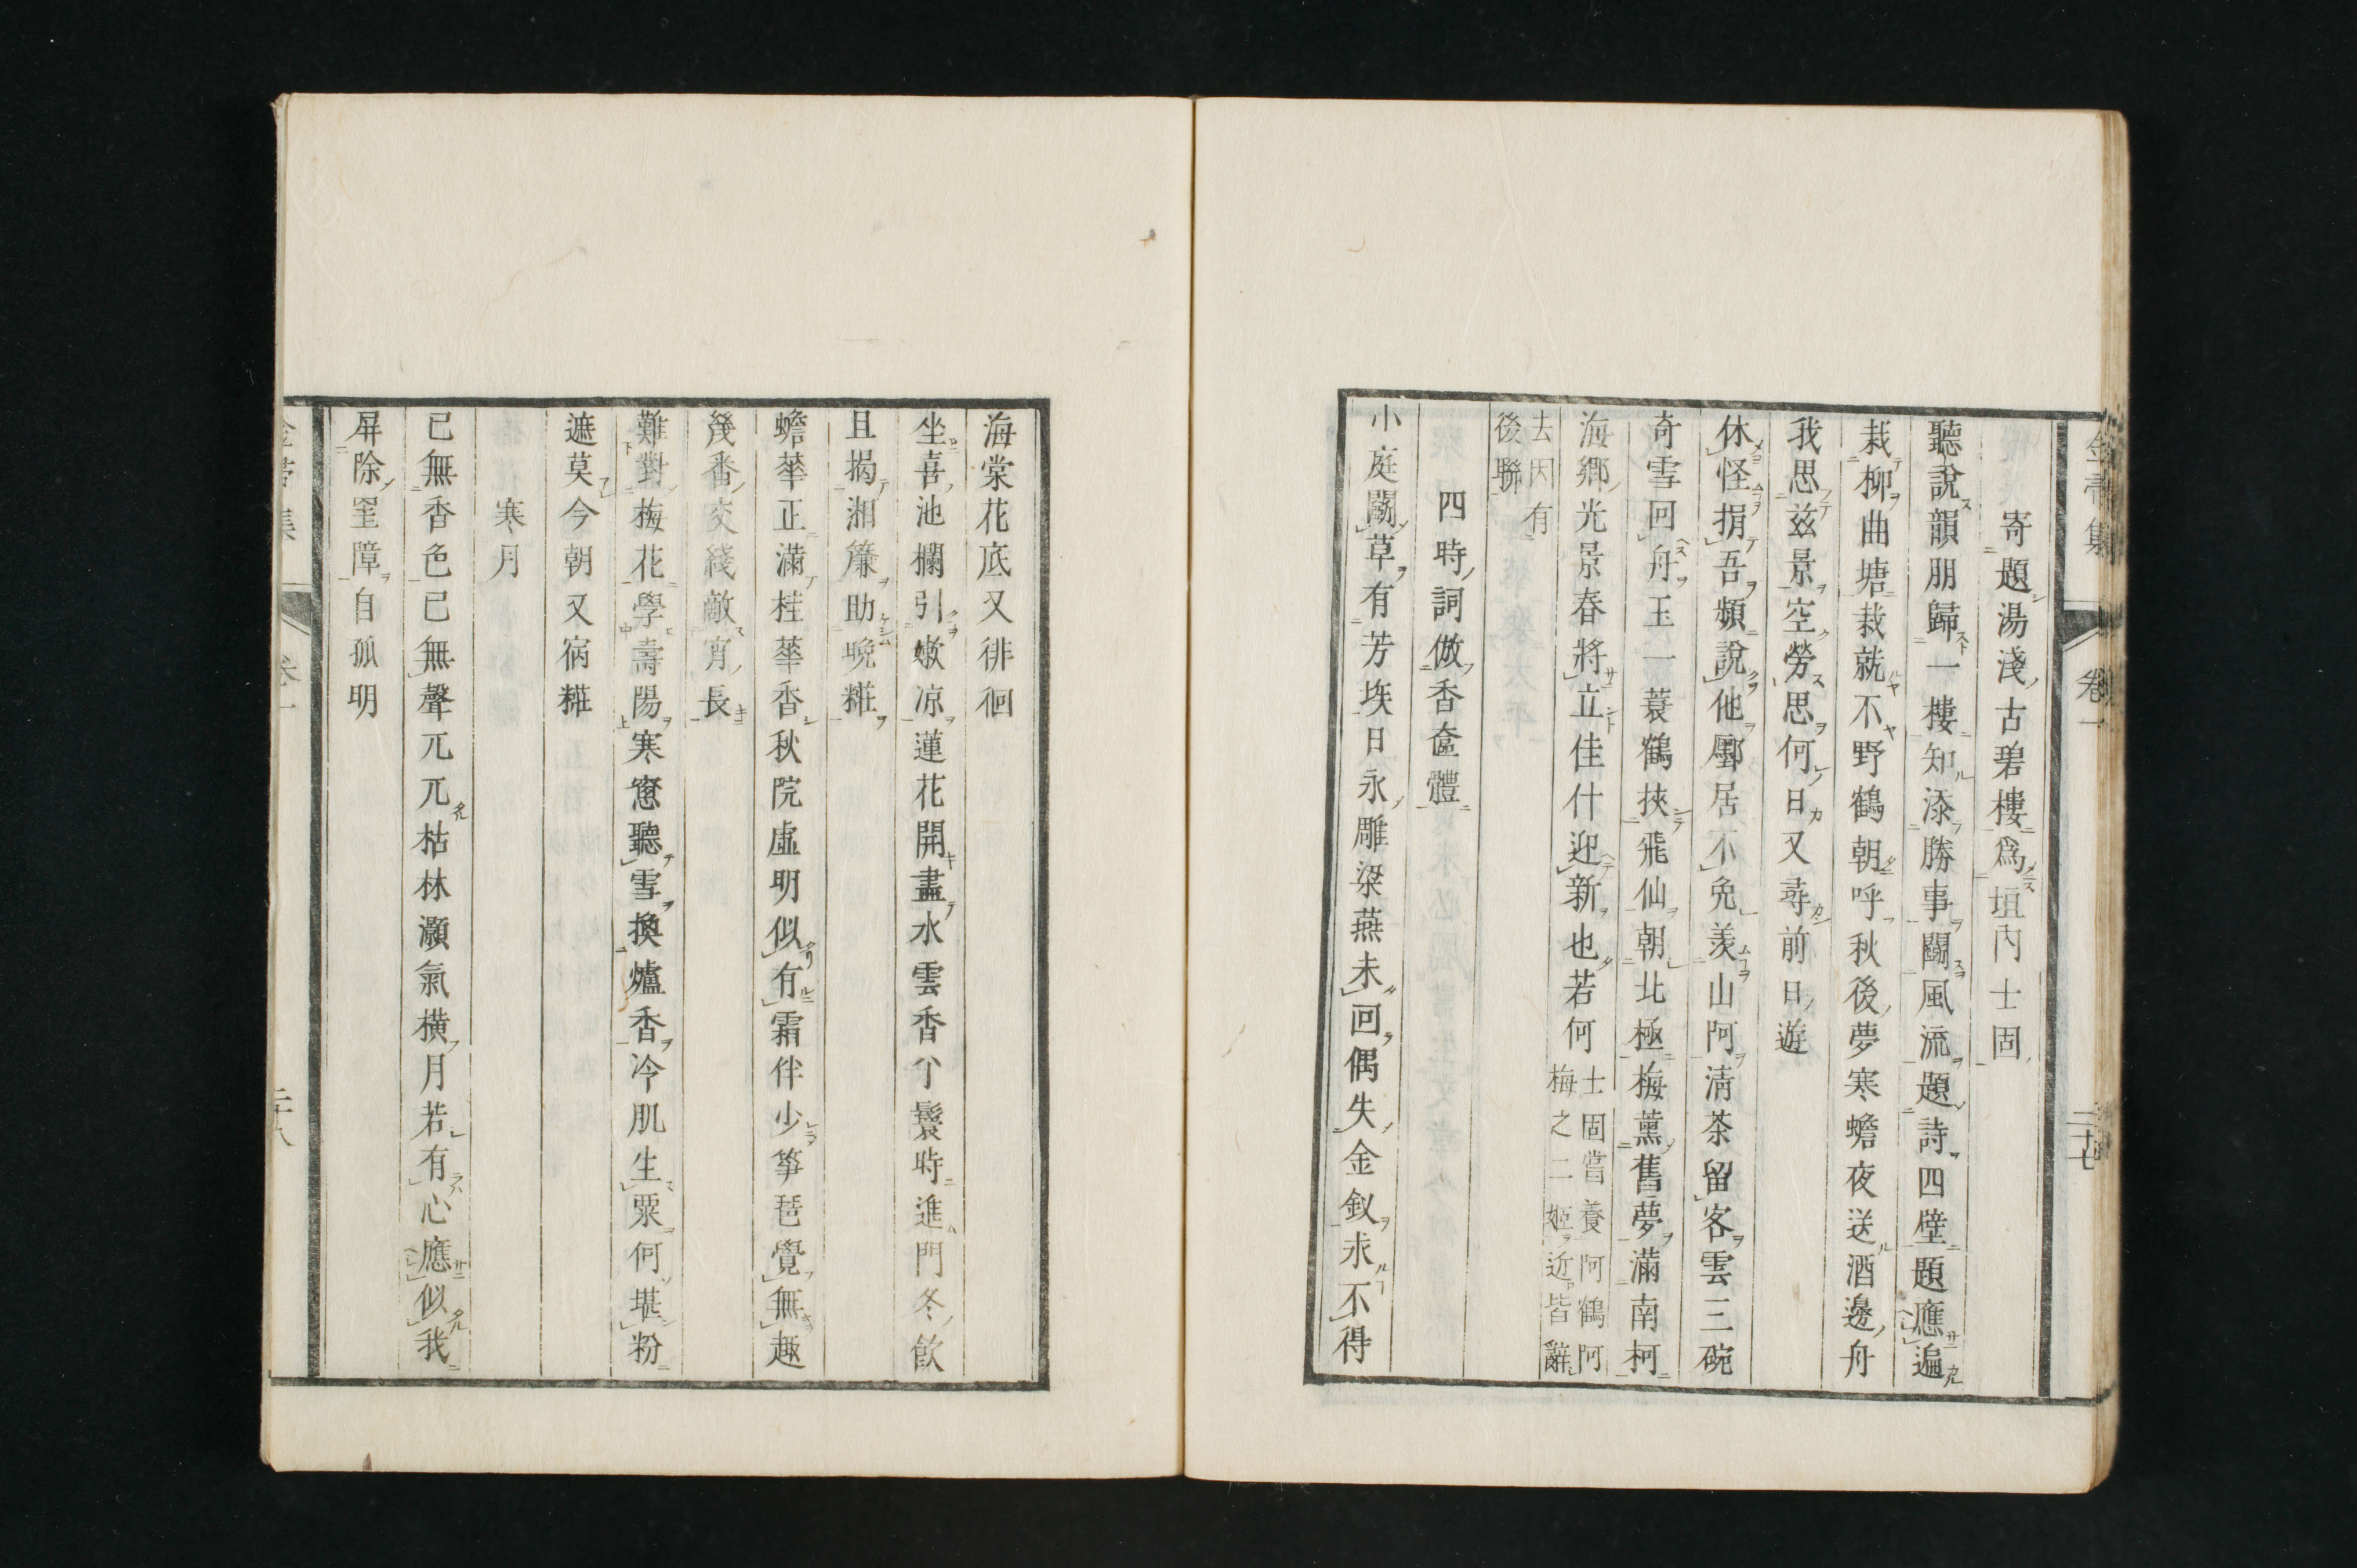 金帚集 卷一 二十七
寄題湯淺古碧樓爲垣内士固
聽說韻朋歸一樓知添勝事鬭風流題詩四壁題應遍
栽柳曲塘栽就不野鶴朝呼秋後夢寒蟾夜送酒邊舟
我思茲景空勞思何日又尋前日遊
休怪捐吾頻說他鄽居不免羨山阿淸茶留客雲三碗
奇雪回舟玉一蓑鶴挾飛仙朝北極梅薰舊夢滿南柯
海鄉光景春將立佳什迎新也若何
士固嘗養阿鶴阿
梅之二姬近皆辭
去因有
後聯
四時詞倣香奩體
小庭鬭草有芳埃日永雕梁燕未回偶失金釵求不得
海棠花底又徘徊
坐喜池欄引嫰凉蓮花開盡水雲香个鬟時進門冬飮
且揭湘簾助晚糚
蟾華正滿桂華香秋院虛明似有霜伴少箏琶覺無趣
幾番交綫敵宵長
難對梅花學壽陽寒窻聽雪換爐香冷肌生粟何堪粉
遮莫今朝又宿糚
寒月
已無香色已無聲兀兀枯林灝氣橫月若有心應似我
屏除罣障自孤明
卷一
二十八